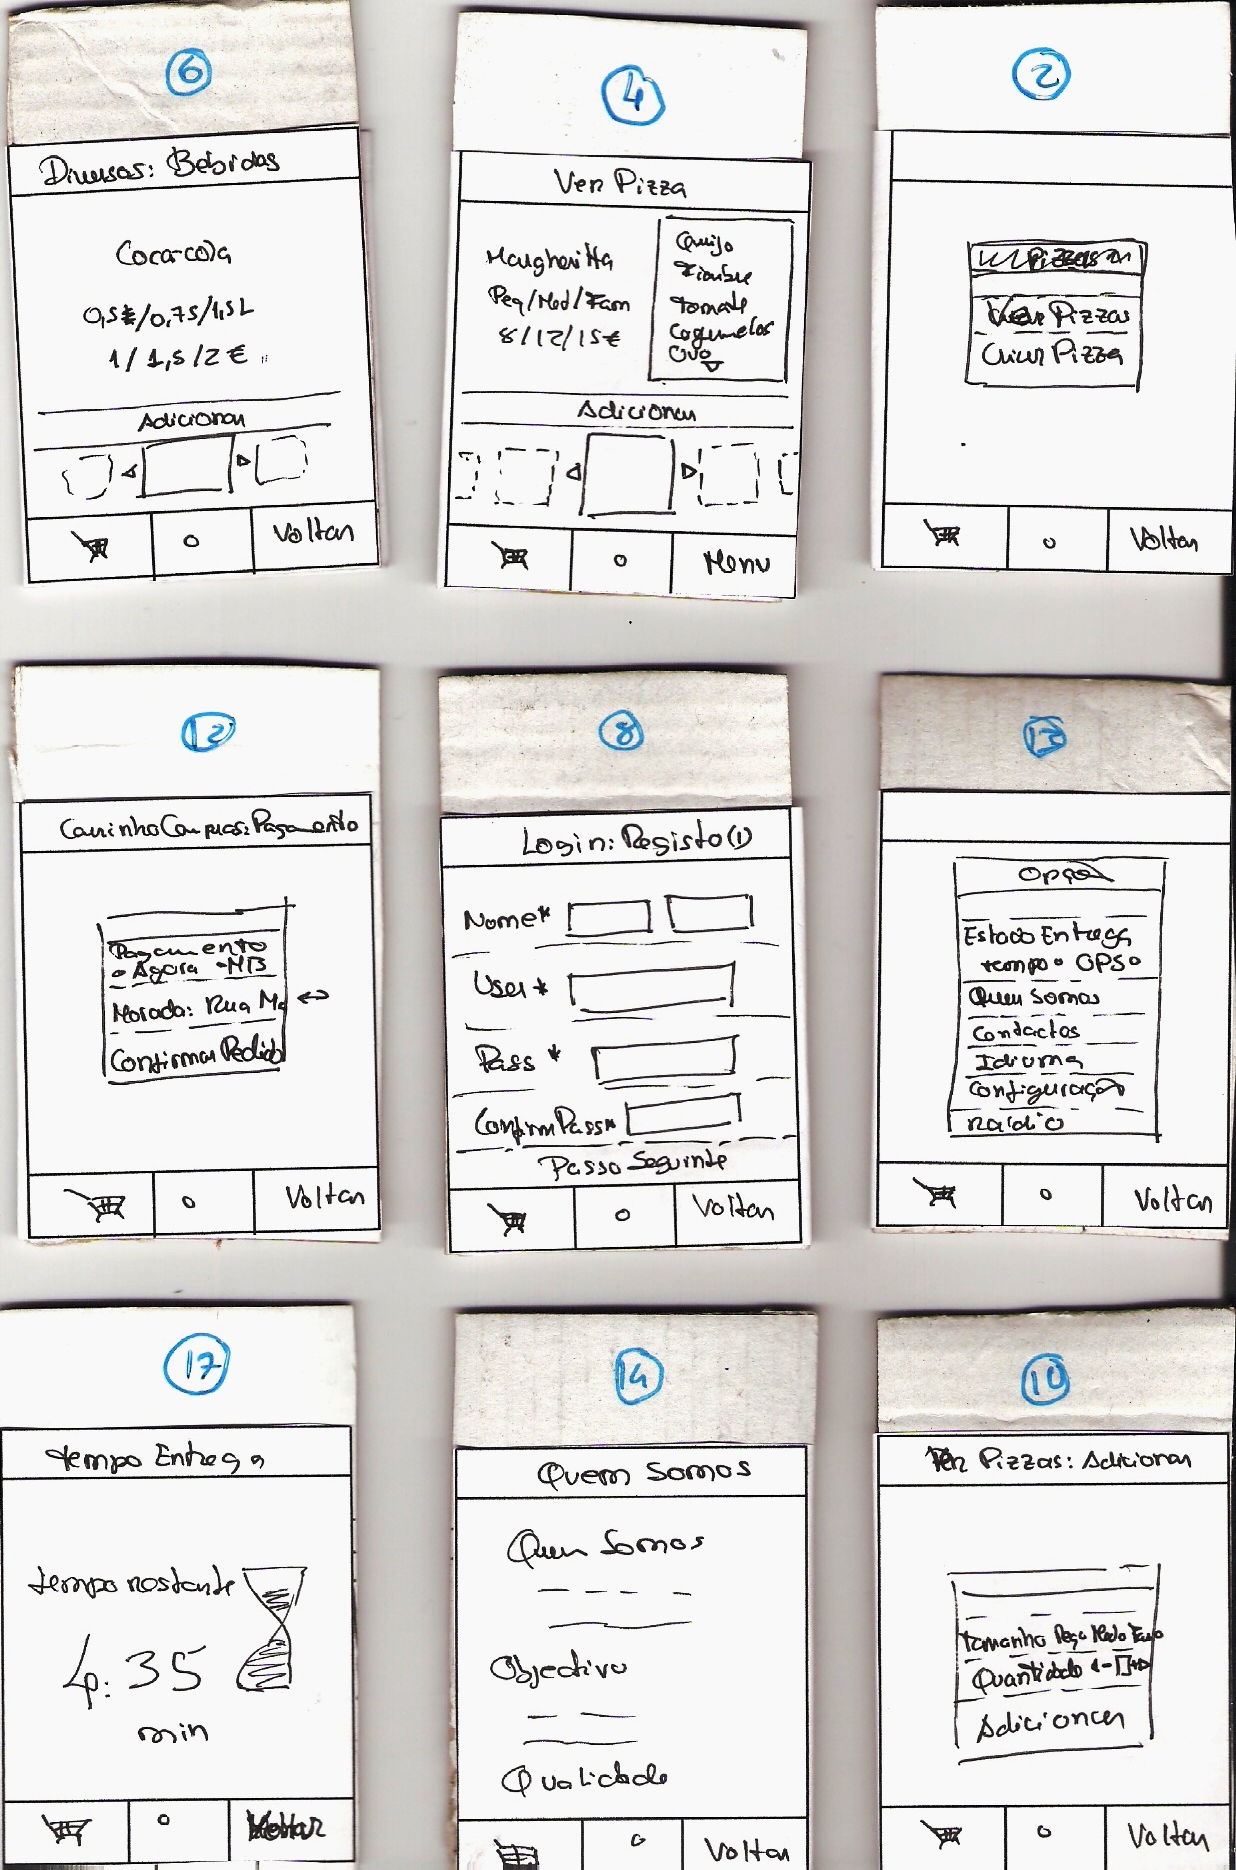 6
Diversos: Bebidas
Coca-cola
0,5/0,75/1,5L
1/1,5/2€
Adicionar
Voltar
4
Ver Pizza
Margheritta
Peq/Med/Fam
8/12/15€
Queijo
Fiambre
Tomate
Cogumelos
Ovo
Adicionar
Menu
2
Pizzas
Criar Pizza
Voltar
12
Carrinho Compras: Pagamento
Pagamento
Agora MB
Morada: Rua
Confirmar Pedido
Voltar
8
Login: Registo(1)
Nome*
User*
Pass*
ConfirmPass*
Passo Seguinte
Voltar
13
Opções
Estado Entrega
tempo GPS
Quem Somos
Contactos
Idioma
Configuração
Rádio
Voltar
17
Tempo Entrega
tempo restante
4:35
min
Voltar
14
Quem Somos
Quem Somos
Objectivo
Qualidade
Voltar
10
Ver Pizzas: Adicionar
Tamanho
Quantidade
Adicionar
Voltar